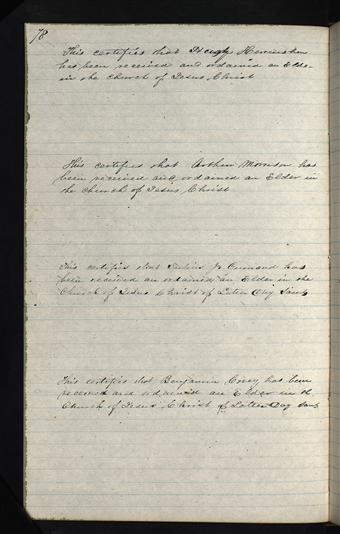 78
This certifies that Hugh Herrinshaw
has been received and ordained an Elder
in the church of Jesus Christ
This certifies that Arthur Morrison has
been received and ordained an Elder in
the church of Jesus Christ
This certifies that J. has
been received an ordained an Elder in the
Church of Jesus Christ of Latter Day Saints
This certifies that Benjamin Covey has been
received and ordained an Elder in the
Church of Jesus Christ of Latter Day Saints